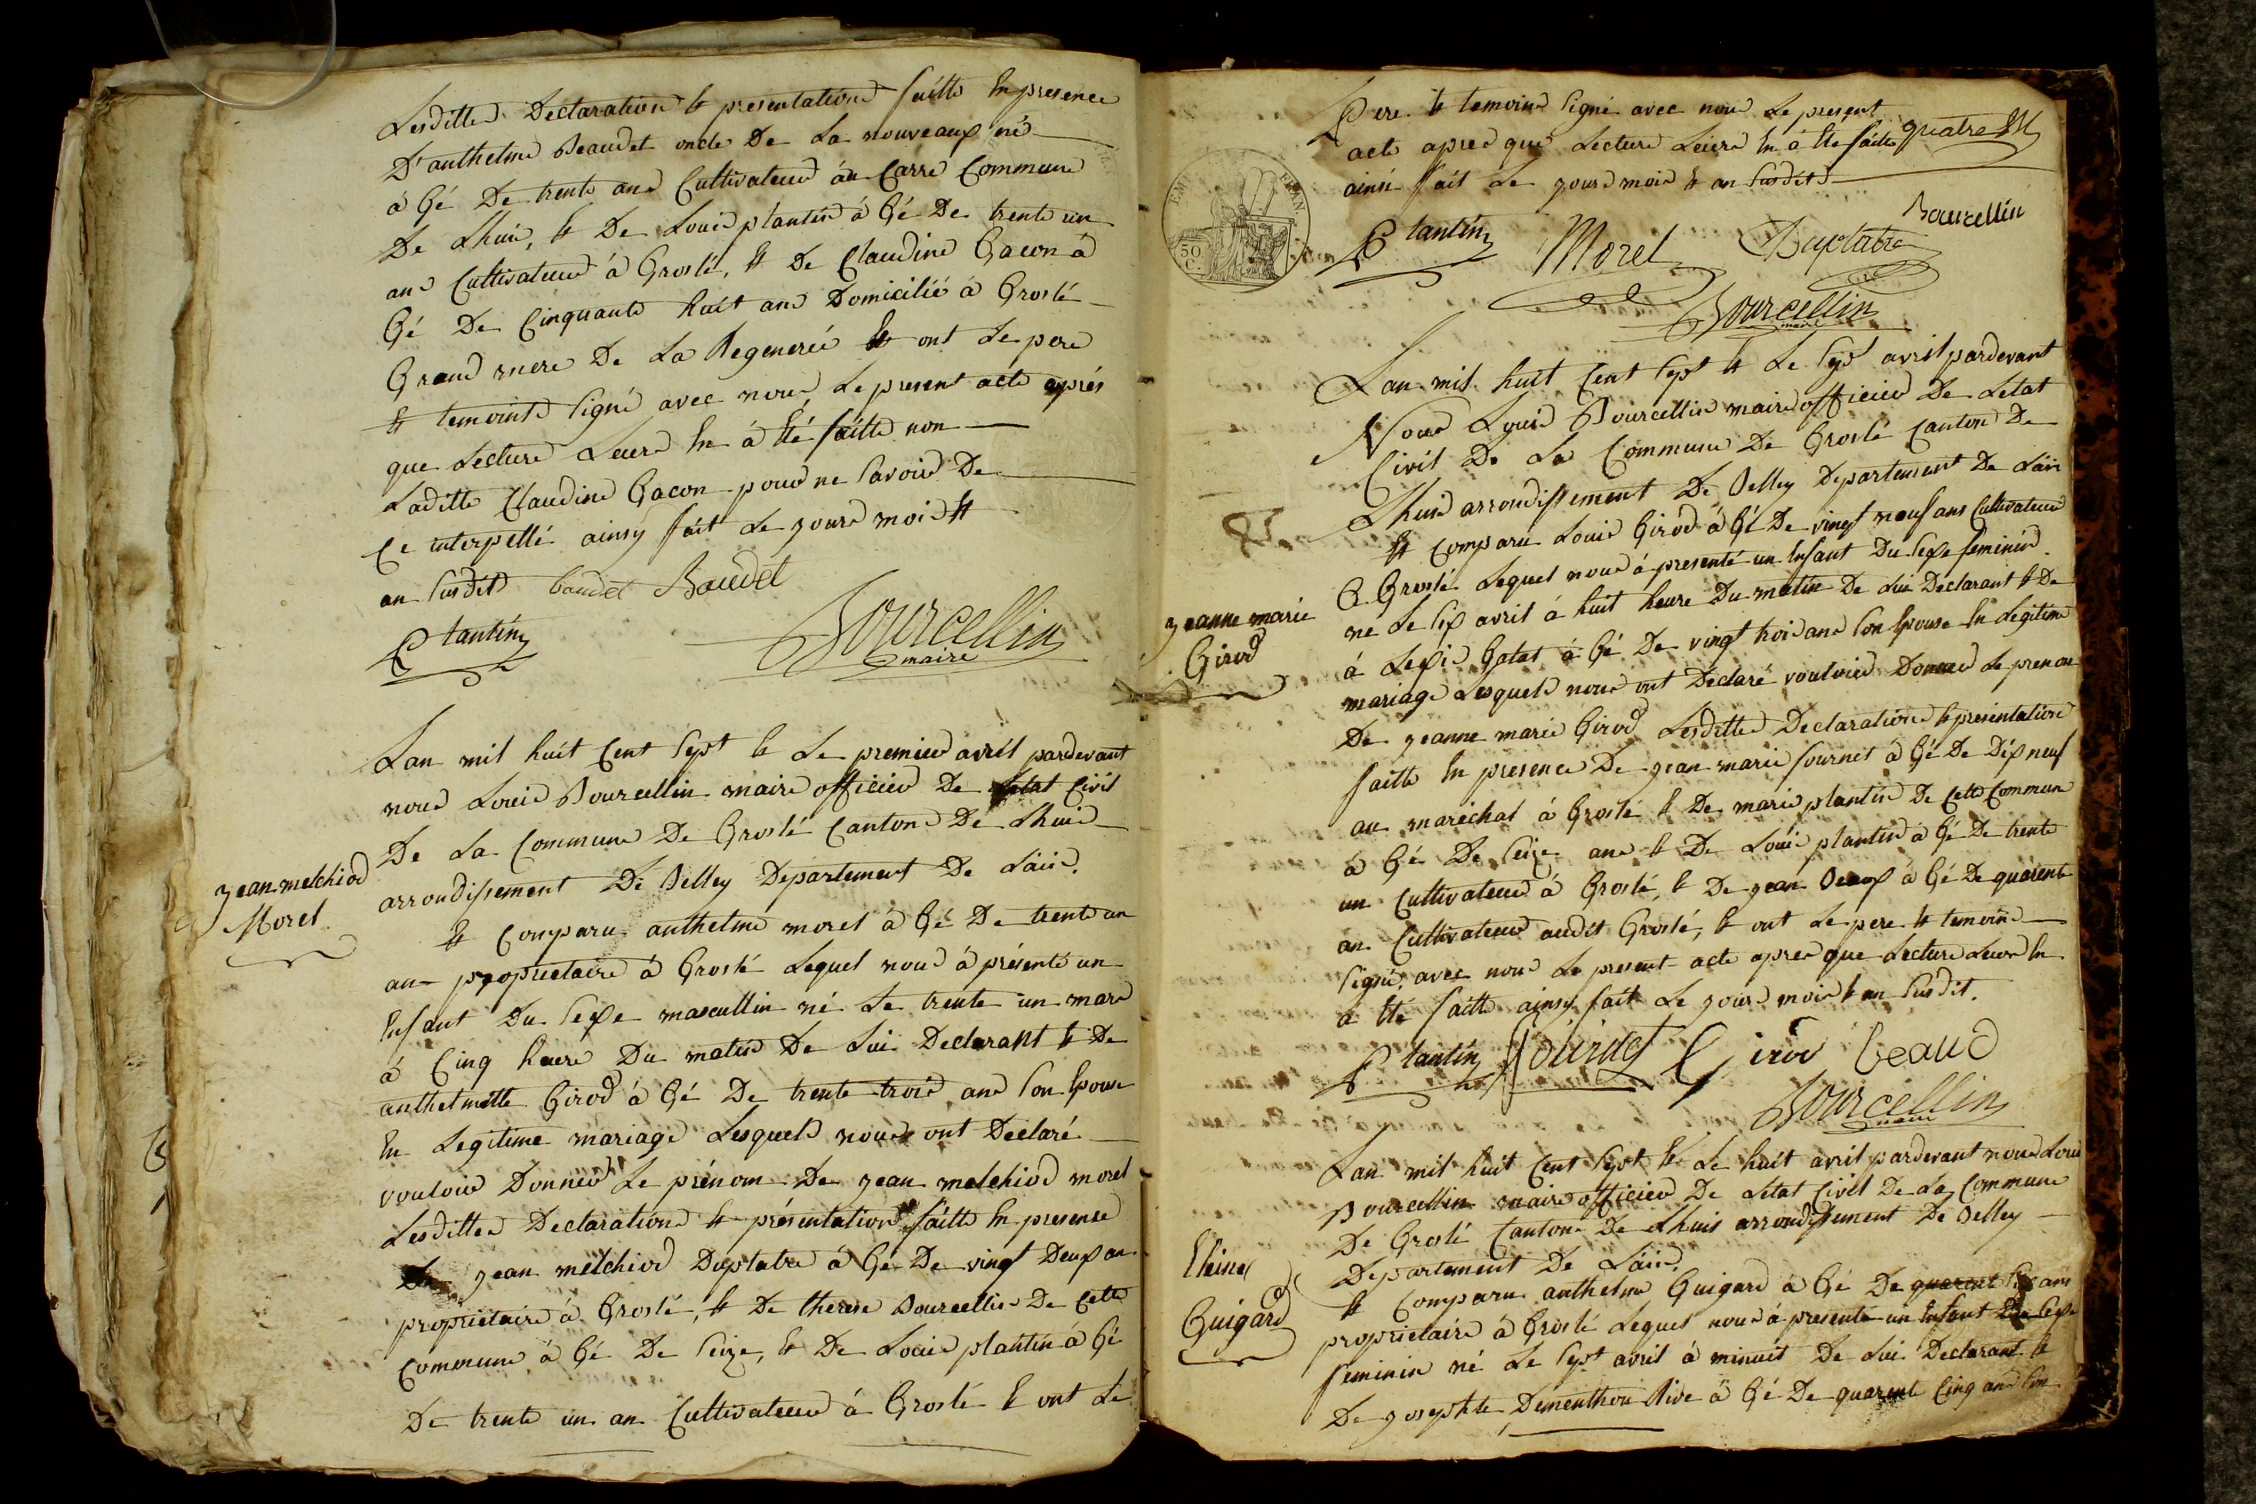 Lesdittes Declarations & presentations faitte En presence
D'anthelme Beaudet oncle De La nouveaux né
à Gé De trente ans Cultivateur au Carre Commune
De Lhuis, & De Louis plantin à Gé De trente un
ans Cultivateur à Groslé, & De Claudine Gacon à
Gé De Cinquante huit ans Domicilié à Groslé
Grand mere De La Regenerée & ont Le pere
& temoints signé avec nous, Le present acte aprés
que Lecture Leurs En á Eté faitte non
Laditte Claudine Gacon pour ne savoir De
Ce interpellé ainsy fait Le jours mois &
an susdits baudet Baudet
Plantin
Bourcellin
maire
jean melchior
Morel
Lan mil huit Cent sept & Le premier avril pardevant
nous Louis Bourcellin maire officier De Letat Civil
De La Commune De Groslé Canton De Lhuis
arrondissement De Belley Departement De Lain.
Et Comparu anthelme morel à Gé De trente un
an proprietaire à Groslé Lequel nous à présenté un
Enfant Du sexe mascullin né Le trente un mars
à Cinq heure Du matin De Lui Declarant & De
anthelmette Girod à Gé De trente trois ans son Epouse
En Legitime mariage Lesquels nous ont Declaré
vouloir Donner Le prénom De jean melchior morel
Lesdittes Declarations & présentations faitte En presense
De jean melchior Duplatre à Gé De vingt Deux an
proprietaire à Groslé, & De therese Bourcellin De Cette
Commune à Gé De seize, & De Louis plantin à Gé
De trente un an Cultivateur à Groslé & ont Le
Pere & temoins signé avec nous Le present
acte apres que Lecture Leurs En à Eté faitte quatre
ainsi fait Le jours mois & an susdits
EMP
FRAN.
50
C.
Plantin Morel Duplatre Bourcellin
Bourcellin
maire
Lan mil huit Cent sept & Le sept avril pardevant
Nous Louis Bourcellin maire officier De Letat
Civil De La Commune De Groslé Canton De
Lhuis arrondissement De Belley Departement De Lain
jeanne marie
Girod
Et Comparu Louis Girod à Gé De vingt neuf ans Cultivateur
à Groslé Lequel nous à presenté un Enfant Du sexe feminin
né Le six avril à huit heure Du matin De Lui Declarant & De
à Lexis Galat à Gé De vingt trois ans son Epouse En Legitime
mariage Lesquels nous ont Declaré vouloir Donner Le prenom
De jeanne marie Girod Lesdittes Declarations & presentations
faitte En presence De jean marie fournet à Gé De Dix neuf
an maréchal à Groslé & De marie plantin De Cette Commune
à Gé De seize ans & De Louis plantin à Gé De trente
un Cultivateur à Groslé, & De jean Beaux à Gé De quarente
an Cultivateur audit Groslé, & ont Le pere & temoins
signé, avec nous Le present acte apres que Lecture Leurs En
à Eté faitte ainsy fait Le jours mois & an susdit.
Plantin fournet Girod beaud
Bourcellin
maire
Lan mil huit Cent sept & Le huit avril pardevant nous Louis
Bourcellin maire officier De Letat Civil De La Commune
De Groslé Canton De Lhuis arrondissement De Belley
Departement De Lain.
Guigard
Et Comparu anthelme Guigard à Gé De quarent six ans
proprietaire à Groslé Lequel nous à presenté un Enfant Du sexe
feminin né Le sept avril à minuit De Lui Declarant &
De josephte Dementhon Rive à Gé De quarente Cinq ans son